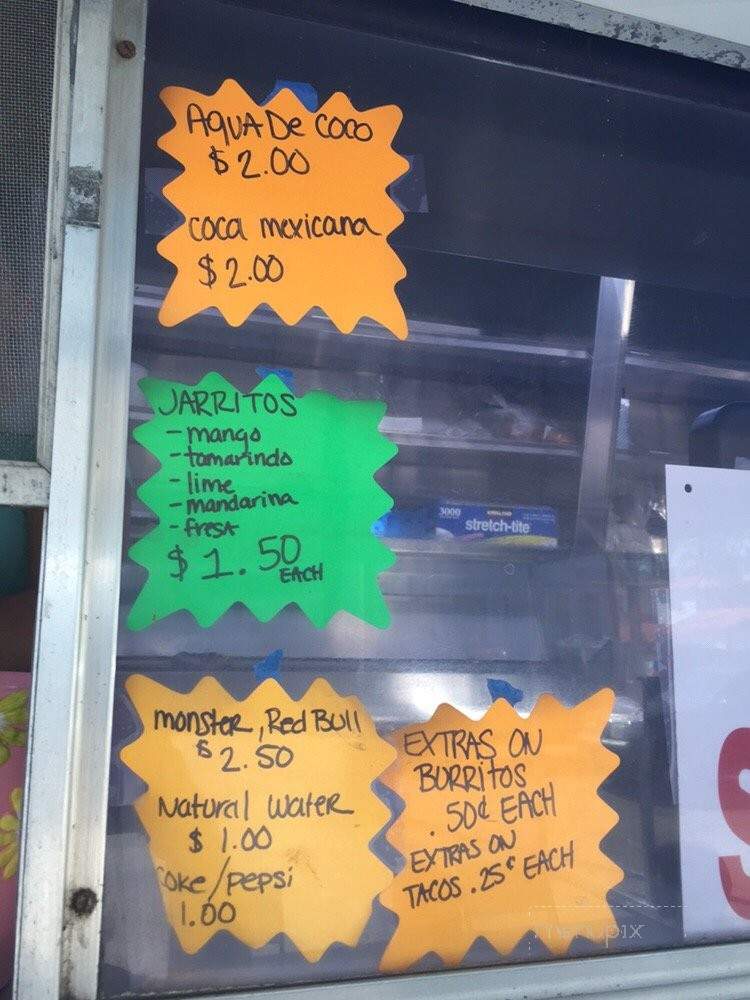 AQUA De COCO
$2.00
coca mexicana
$2.00
JARRITOS
- mango
- tamarindo
- lime
- mandarina
- fresa
$1.50
EACH
3000
KIRKLAND
stretch-tite
monster, Red Bull
$2.50
Natural Water
$1.00
Coke/pepsi
1.00
EXTRAS ON
BURRITOS
.50¢ EACH
EXTRAS ON
TACOS .25¢ EACH
menupix